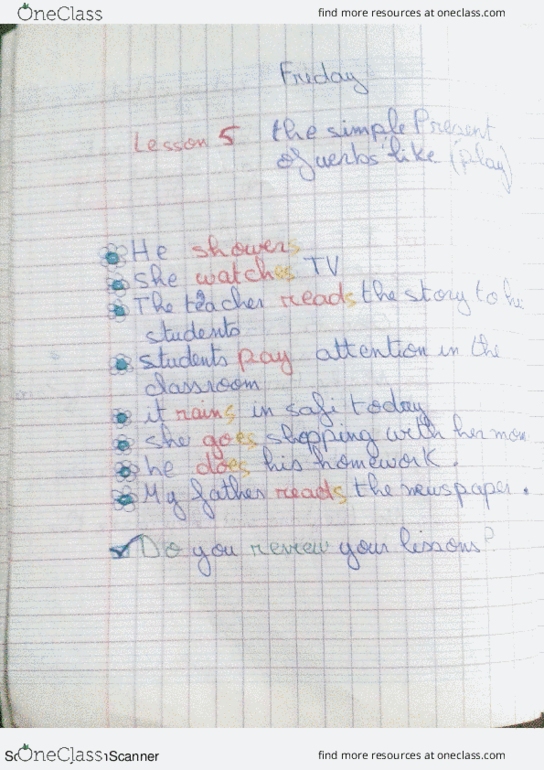 OneClass
find more resources at oneclass.com
Friday
Lesson 5 the simple Present
of verbs like (play)
He showers
she watches TV
The teacher reads the story to
students
students pay attention in the
classroom
it rains in safi today
she goes shopping with her mom
he does his homework.
My father reads the newspaper.
Do you review your lissons?
OneClass
Scanner
find more resources at oneclass.com